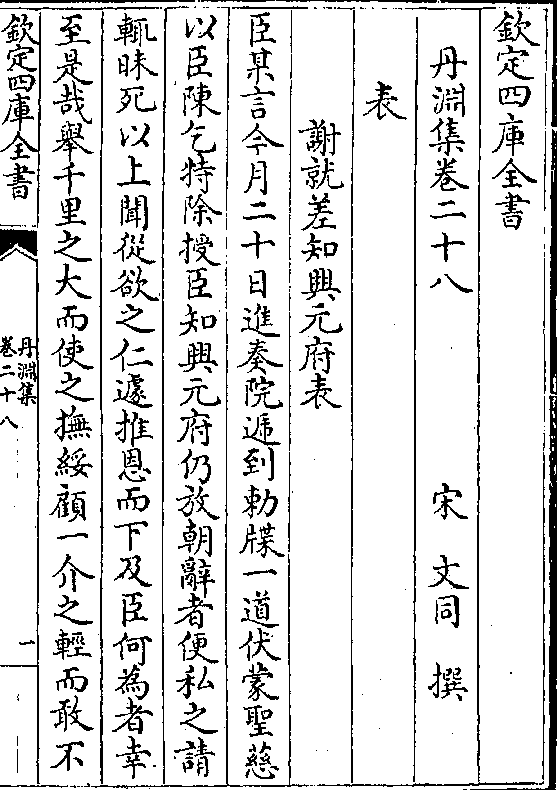 欽定四庫全書
丹淵集卷二十八
宋　文同　撰
表
謝就差知興元府表
臣某言今月二十日進奏院遞到勅牒一道伏蒙聖慈
以臣陳乞特除授臣知興元府仍放朝辭者便私之請
輒昧死以上聞從欲之仁遽推恩而下及臣何為者幸
至是哉舉千里之大而使之撫綏顧一介之輕而敢不
欽定四庫全書
丹淵集
卷二十八
一